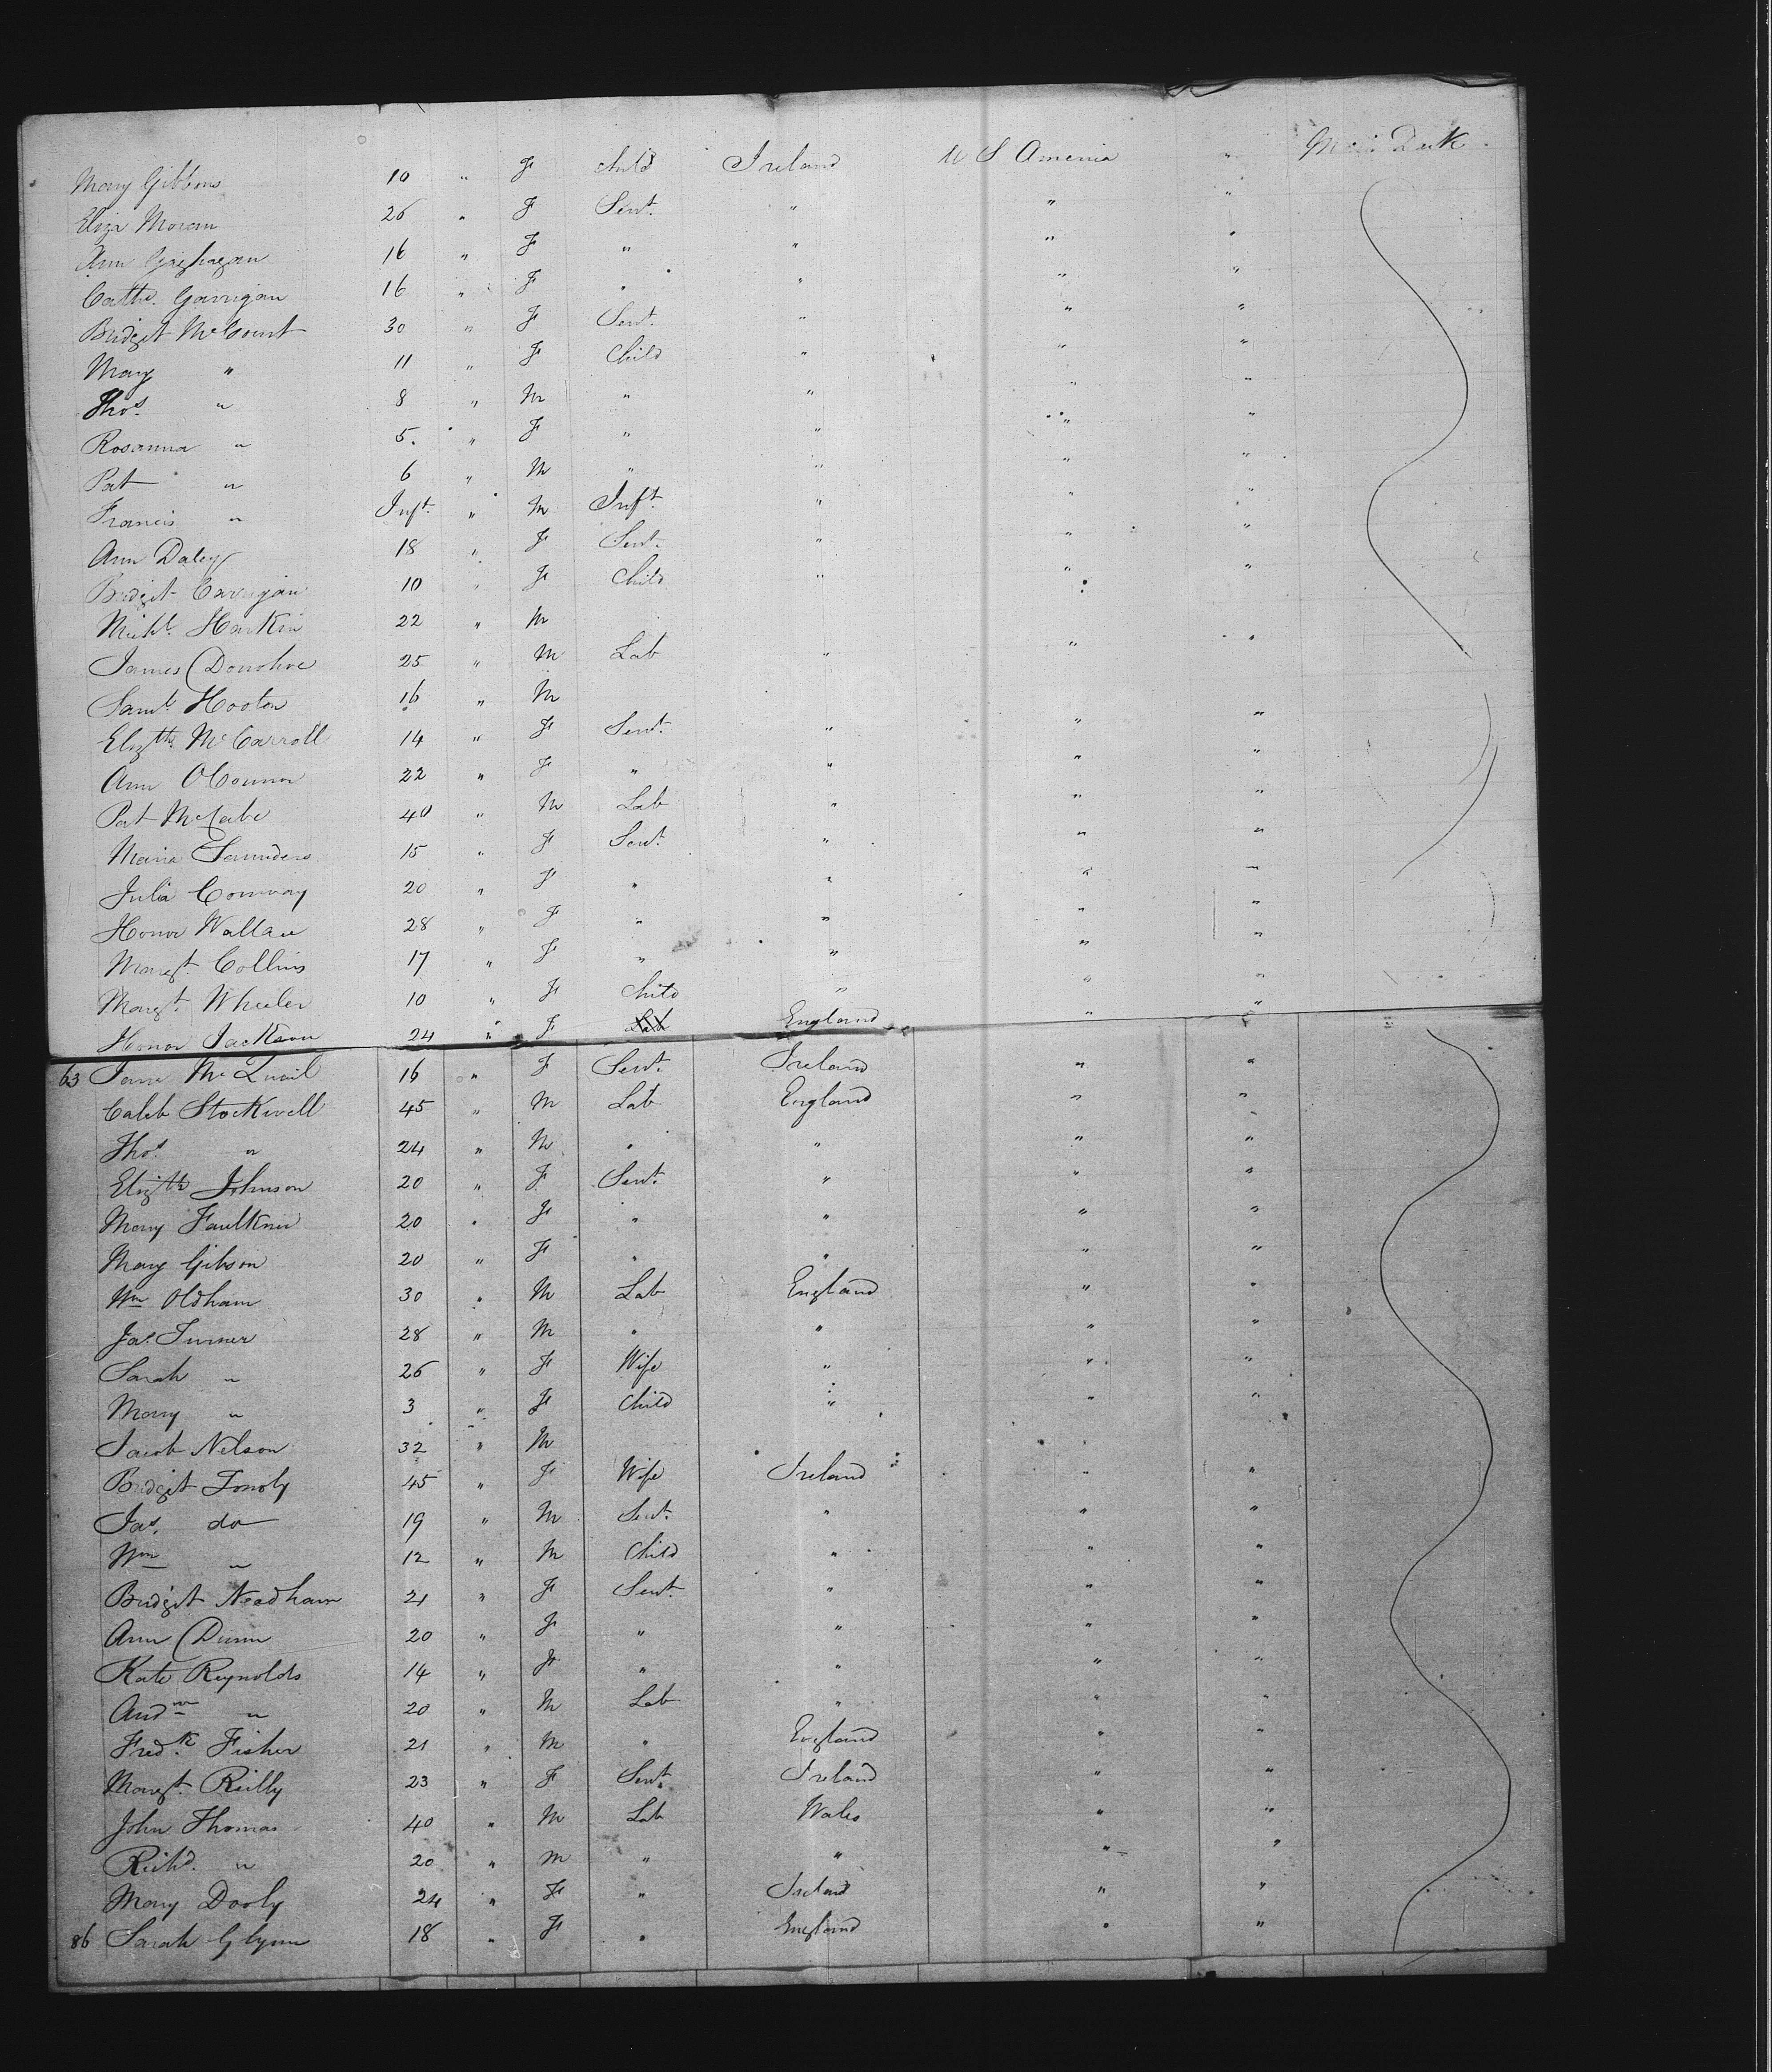 Mary Gibbons 10 " F Child Ireland U S America " Deck
Eliza Moran 26 " F Servt. " " "
Ann Gaghagan 16 " F " " " "
Cathe. Garrigan 16 " F " " " "
Bridget McCourt 30 " F Servt. " " "
Mary " 11 " F Child " " "
Thos. " 8 " M " " " "
Rosanna " 5. " F " " " "
Pat " 6 " M " " " "
Francis " Inft. " M Inft. " " "
Ann Daley 18 " F Servt. " " "
Bridget Carrigan 10 " F Child " " "
Michl. Harkin 22 " M
James Donohoe 25 " M Lab " " "
Saml. Hooton 16 " M
Elizth. McCarroll 14 " F Servt. " " "
Ann OConnor 22 " F " " " "
Pat McCabe 40 " M Lab " " "
Maria Saunders 15 " F Servt. " " "
Julia Conway 20 " F " " " "
Honor Wallace 28 " F " " " "
Margt. Collins 17 " F " " " "
Margt. Wheeler 10 " F Child " " "
Honor Jackson 24 " F Lab England " "
63 Jane McQuail 16 " F Servt. Ireland " "
Caleb Stockwell 45 " M Lab England " "
Thos. " 24 " M " " " "
Elizth Johnson 20 " F Servt. " " "
Mary Faulkner 20 " F " " " "
Mary Gibson 20 " F " " " "
Wm Oldham 30 " M Lab England " "
Jas. Turner 28 " M " " " "
Sarah " 26 " F Wife " " "
Mary " 3 " F Child " " "
Jacob Nelson 32 " M
Bridget 45 " F Wife Ireland " "
Jas. do 19 " M Servt. " " "
Wm " 12 " M Child " " "
Bridget Needham 21 " F Servt. " " "
Ann Dunn 20 " F " " " "
Kate Reynolds 14 " F " " " "
Andw " 20 " M Lab " " "
Fredk. Fisher 21 " M " England " "
Margt. Reilly 23 " F Servt. Ireland " "
John Thomas 40 " M Lab Wales " "
Richd. " 20 " M " " " "
Mary Dooly 24 " F " Ireland " "
86 Sarah Glynn 18 " F " England " "